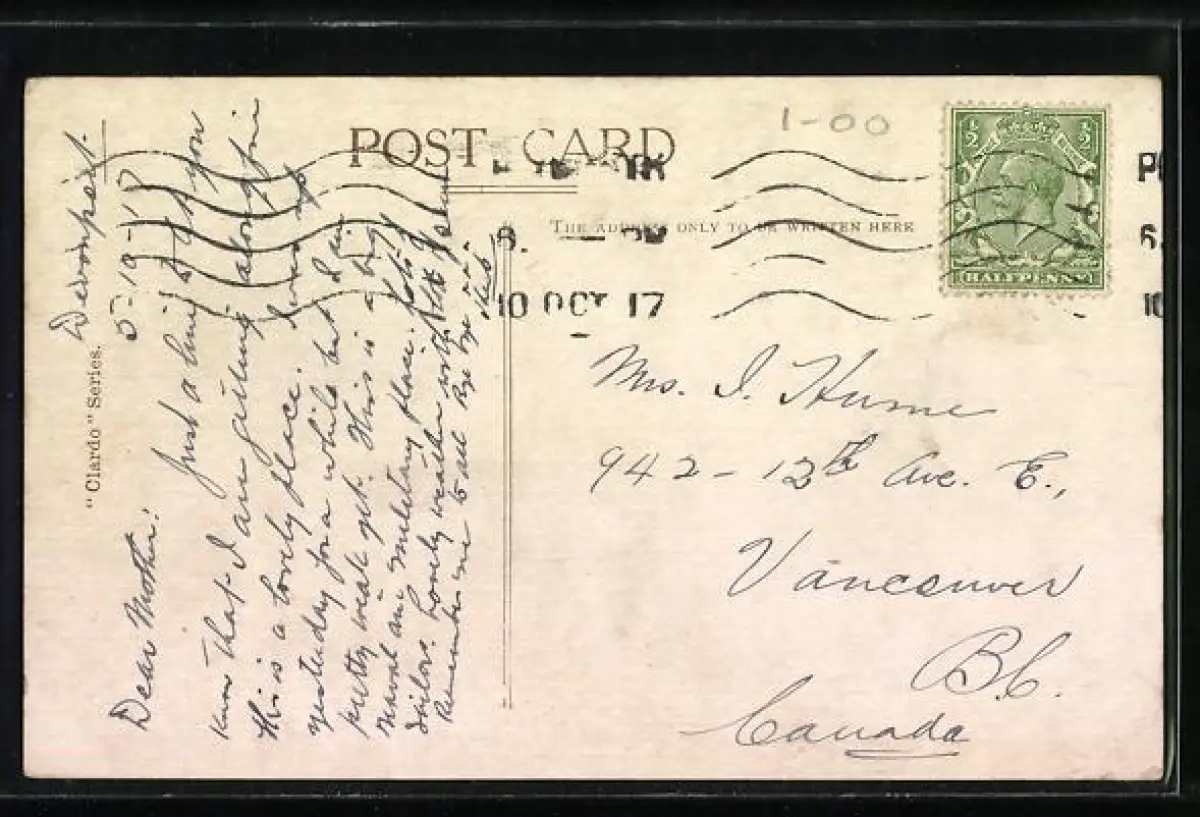 POST CARD
1-00
THE ADDRESS ONLY TO BE WRITTEN HERE
½ ½
HALFPENNY
10 OCT 17
10
"Clardo" Series.
Devonport.
5-10-17
Dear Mother:
Just a line to let you
know that I am getting along fine
this is a lovely place. I was up
yesterday for a while but I am
pretty weak yet. This is a big
Naval and military place. Lots of
sailors. Lovely weather with
Remember me to all Bye bye
Mrs. I. Hume
942-12th Ave. E.,
Vancouver
B.C.
Canada